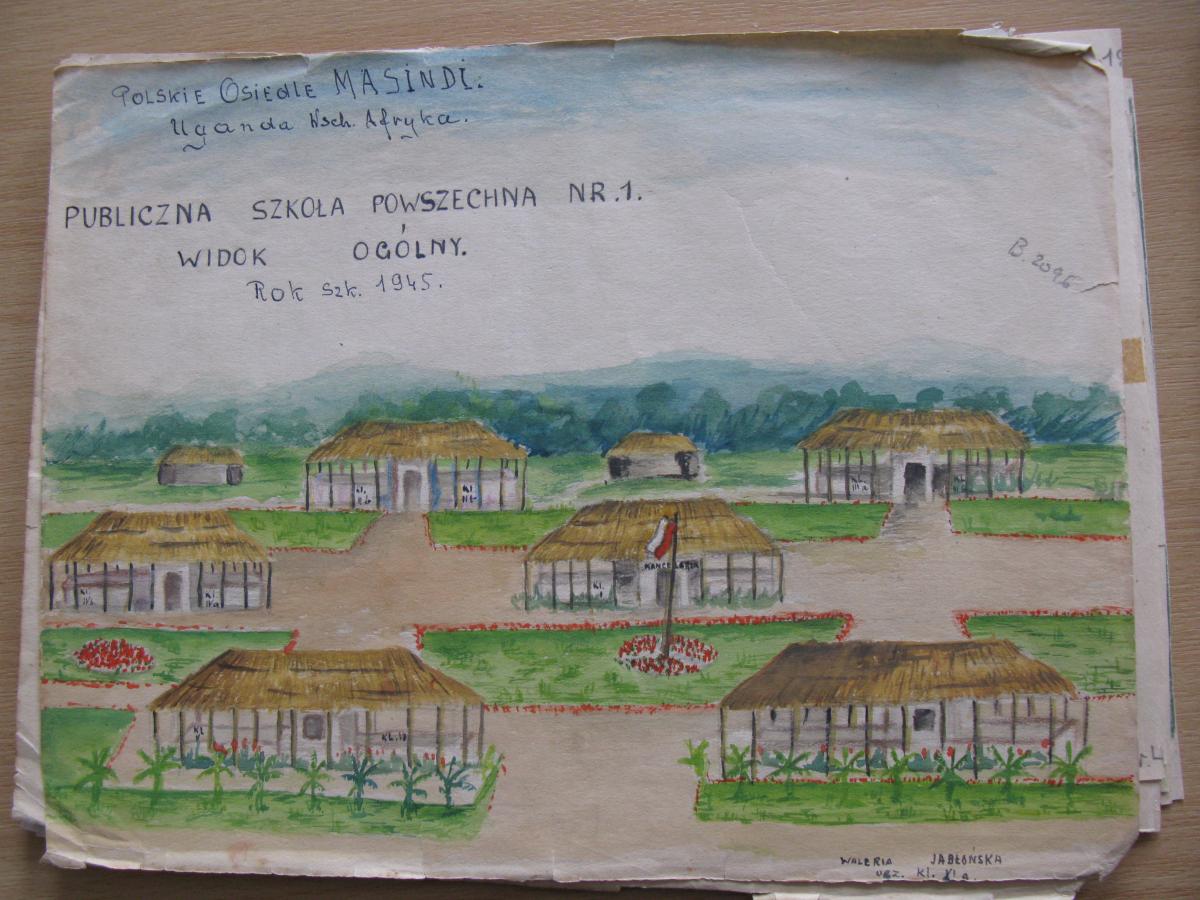 POLSKIE OSIEDLE MASINDI.
Uganda Wsch. Afryka.
PUBLICZNA SZKOŁA POWSZECHNA NR.1.
WIDOK OGÓLNY.
Rok szk. 1945.
B. 2096
KANCELARIA
KL.
WALERIA JABŁOŃSKA
ucz. Kl. VI a